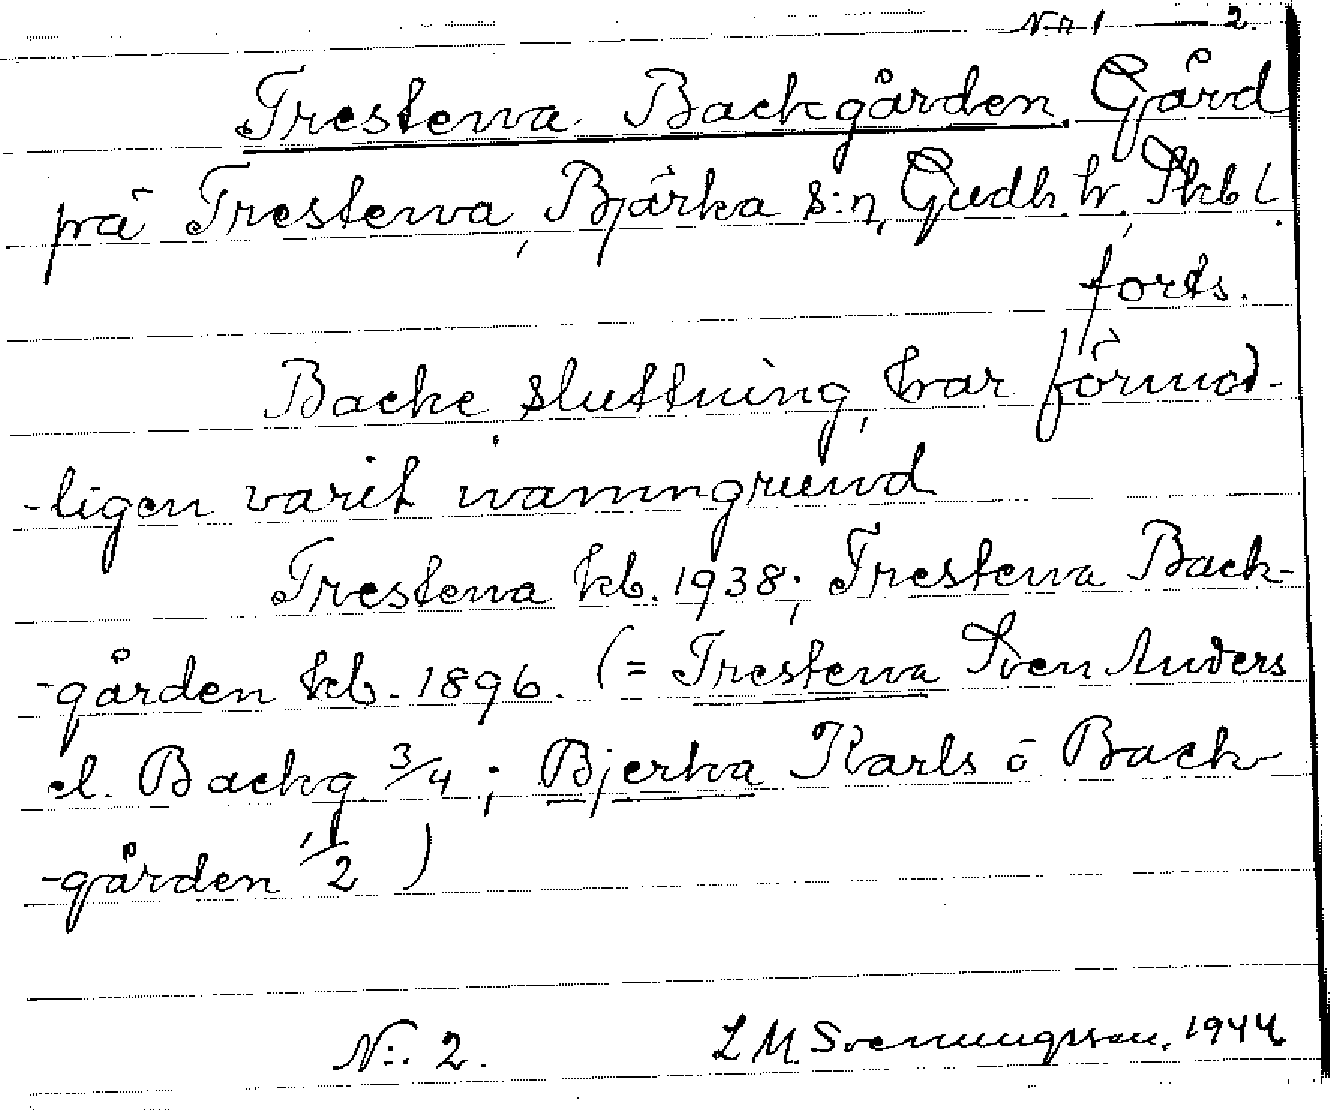 Nr 1 — 2.
Trestena Backgården. Gård
på Trestena, Bjärka s:n, Gudh. hr, Skbl.
forts.
Backe sluttning, har förmod-
-ligen varit namngrund
Trestena kb. 1938; Trestena Back-
-gården kb. 1896. (= Trestena Sven Anders
el. Backg. 3/4; Bjerka Karls ö Back-
-gården 1/2)
N:. 2. L M Svenungsson. 1944